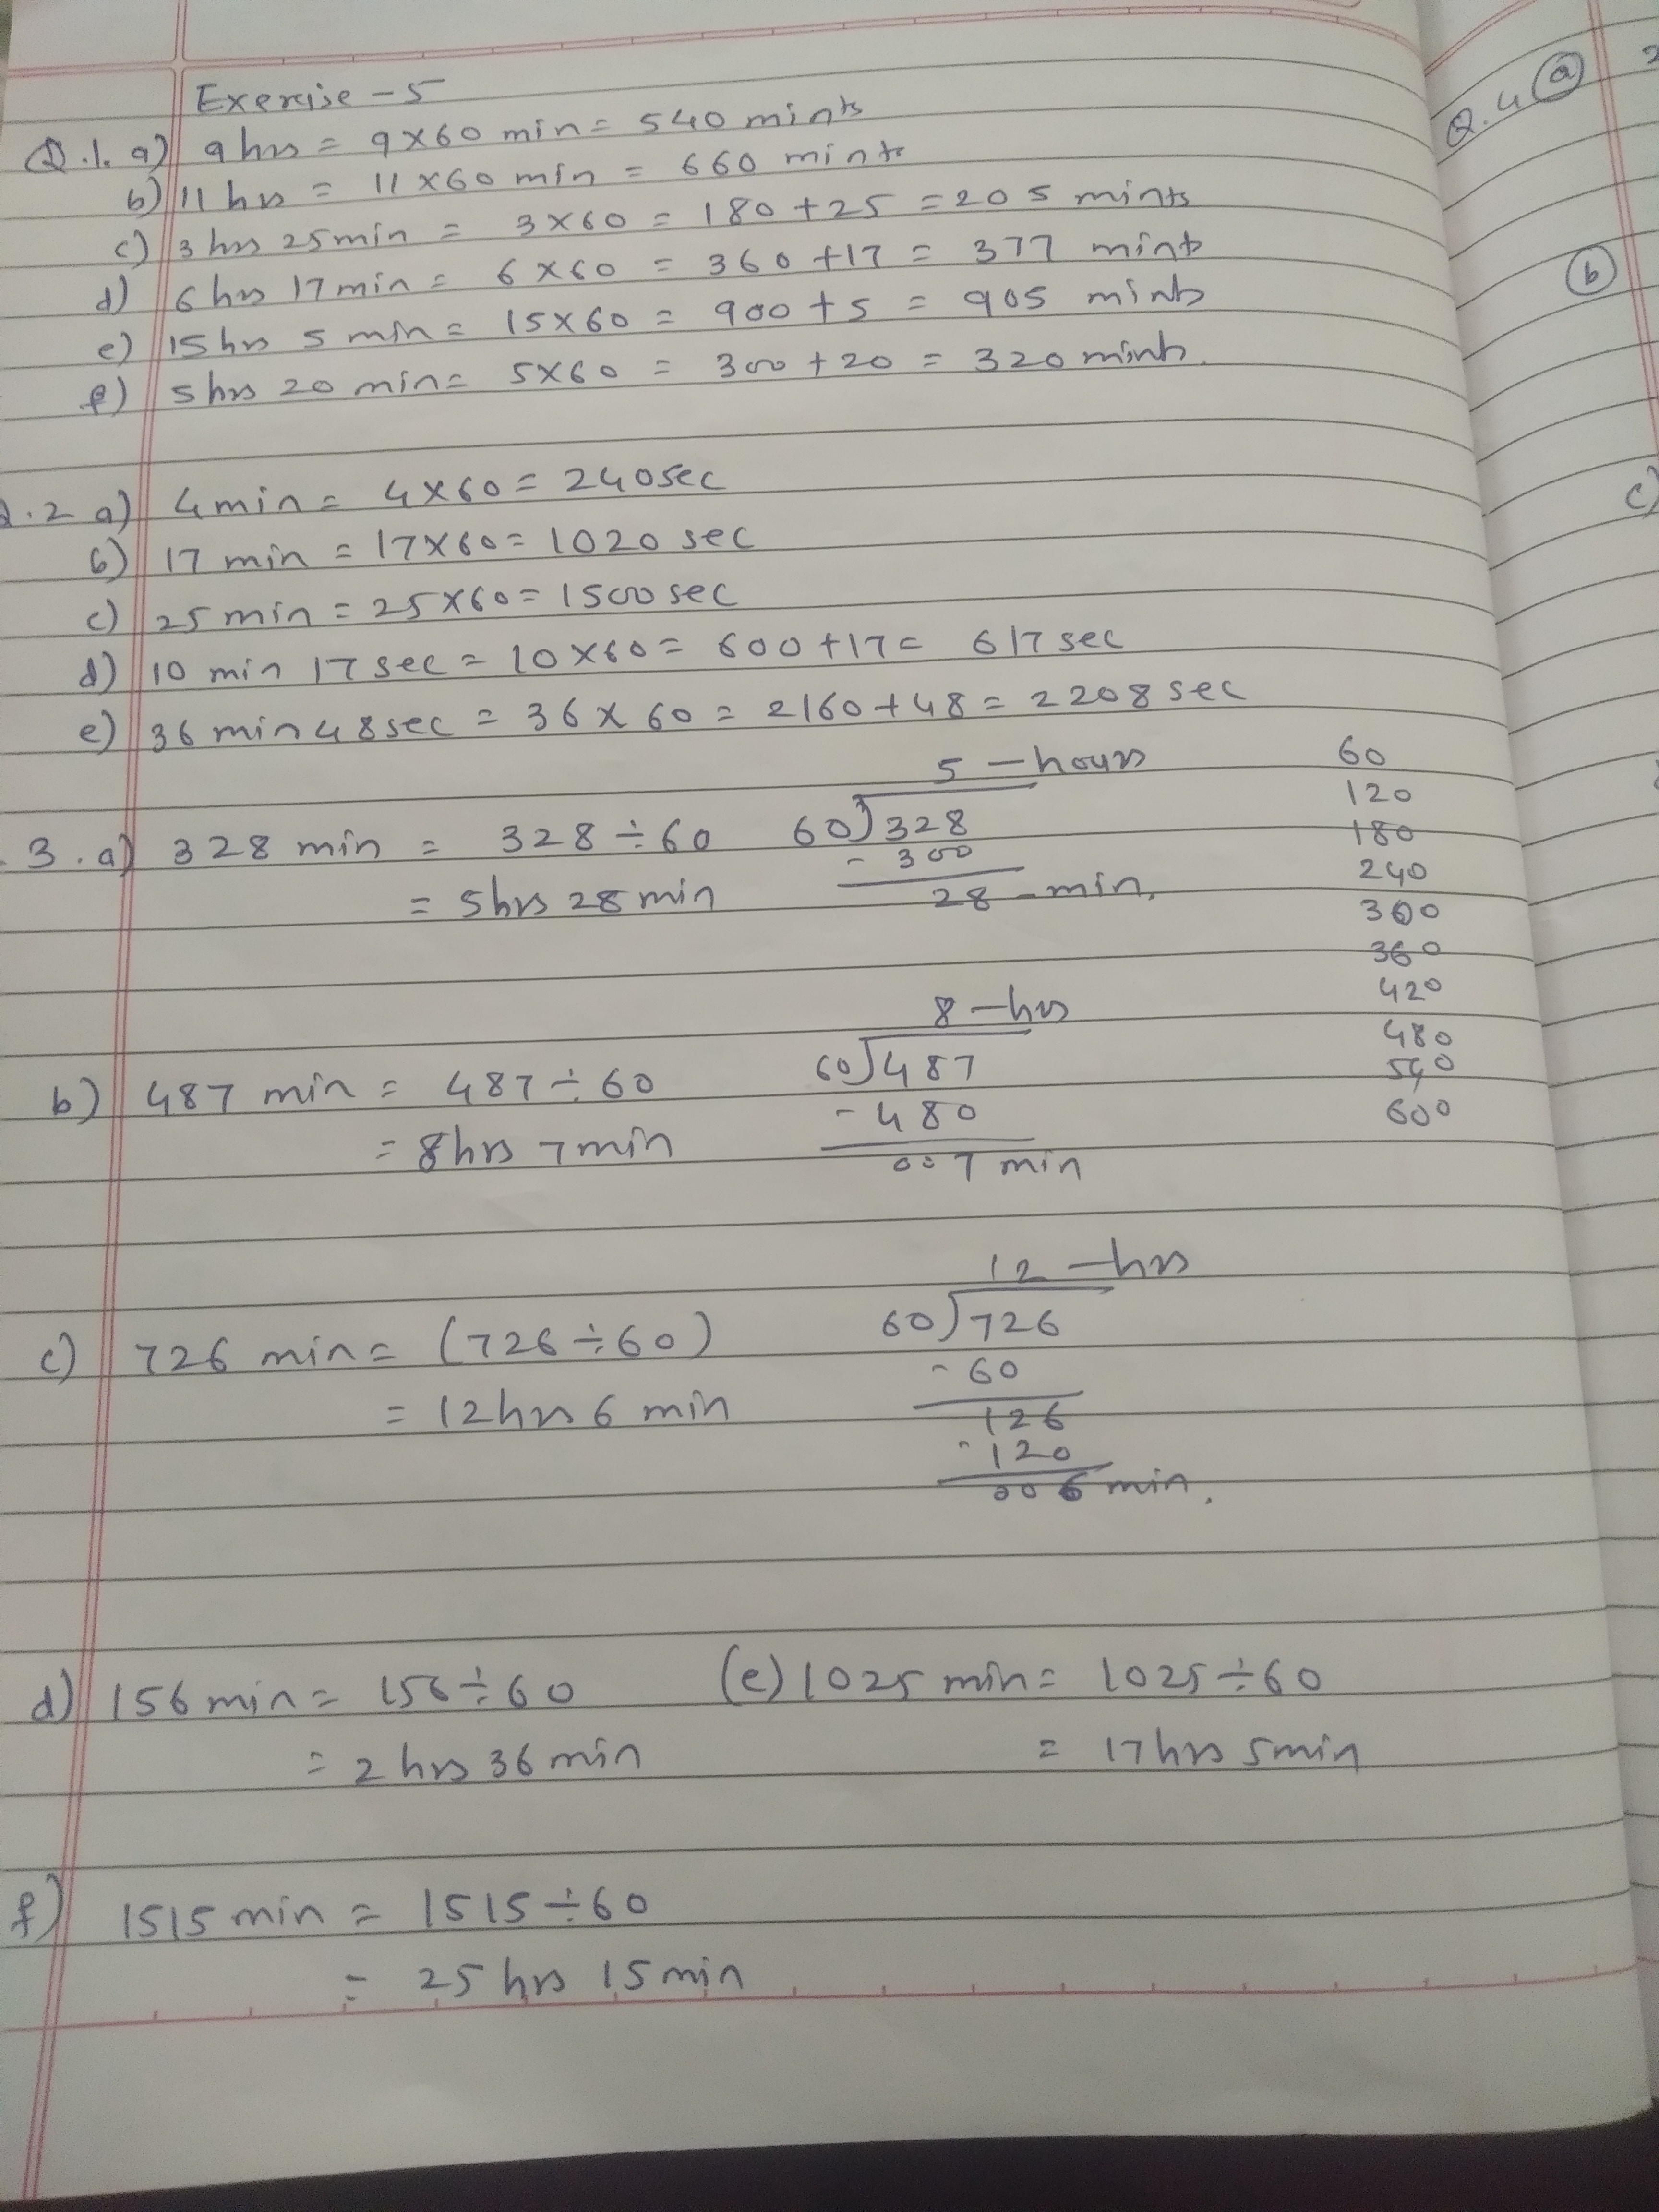 Exercise - 5
Q.1. a) 9 hrs = 9 x 60 min = 540 mints
b) 11 hrs = 11 x 60 min = 660 mints
c) 3 hrs 25 min = 3 x 60 = 180 + 25 = 205 mints
d) 6 hrs 17 min = 6 x 60 = 360 + 17 = 377 mints
e) 15 hrs 5 min = 15 x 60 = 900 + 5 = 905 mints
f) 5 hrs 20 min = 5 x 60 = 300 + 20 = 320 mints.
.2 a) 4 min = 4 x 60 = 240 sec
b) 17 min = 17 x 60 = 1020 sec
c) 25 min = 25 x 60 = 1500 sec
d) 10 min 17 sec = 10 x 60 = 600 + 17 = 617 sec
e) 36 min 48 sec = 36 x 60 = 2160 + 48 = 2208 sec
5 - hours
3. a) 328 min = 328 ÷ 60 60)328
- 300
= 5 hrs 28 min 28 - min.
8 - hrs
b) 487 min = 487 ÷ 60 60)487
- 480
= 8 hrs 7 min 007 min
12 - hrs
c) 726 min = (726 ÷ 60) 60)726
- 60
= 12 hrs 6 min 126
- 120
006 min.
60
120
180
240
300
360
420
480
540
600
d) 156 min = 156 ÷ 60 (e) 1025 min = 1025 ÷ 60
= 2 hrs 36 min = 17 hrs 5 min
f) 1515 min = 1515 ÷ 60
= 25 hrs 15 min
Q.4 (a) 2
(b)
c)